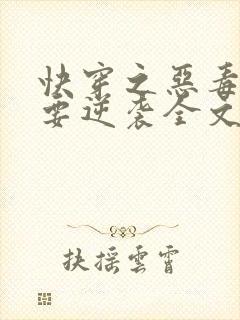 快穿之惡毒
要逆袭全文
扶摇雲霄